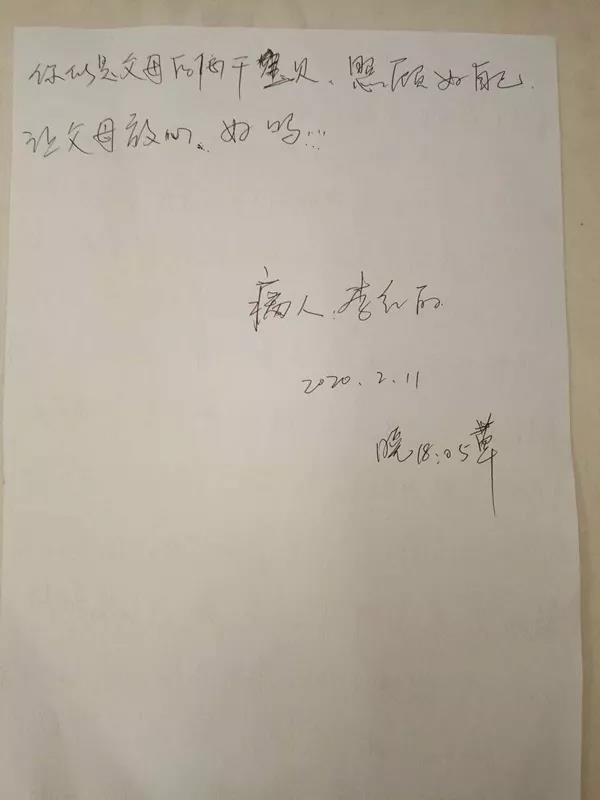 你们是父母的两个宝贝、照顾好自己.
让父母放心、好吗...
病人:李红
2020.2.11
晚18:05草